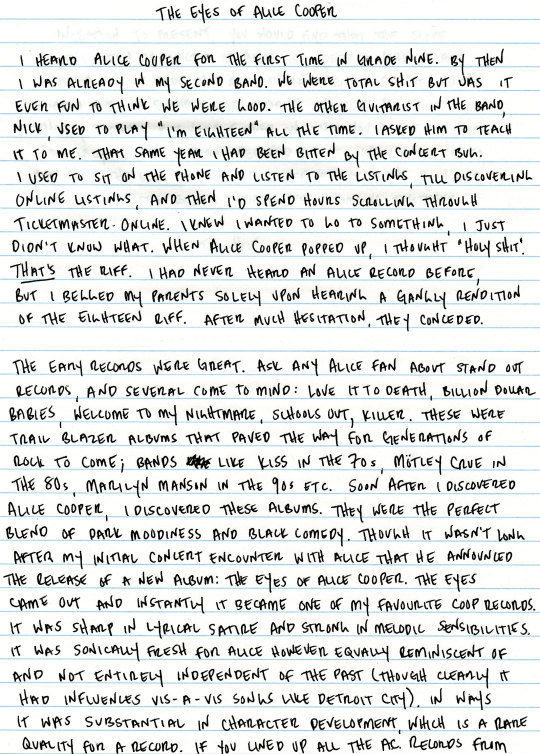 THE EYES OF ALICE COOPER
I HEARD ALICE COOPER FOR THE FIRST TIME IN GRADE NINE. BY THEN
I WAS ALREADY IN MY SECOND BAND. WE WERE TOTAL SHIT BUT WAS IT
EVER FUN TO THINK WE WERE GOOD. THE OTHER GUITARIST IN THE BAND,
NICK, USED TO PLAY "I'M EIGHTEEN" ALL THE TIME. I ASKED HIM TO TEACH
IT TO ME. THAT SAME YEAR I HAD BEEN BITTEN BY THE CONCERT BUG.
I USED TO SIT ON THE PHONE AND LISTEN TO THE LISTINGS, TILL DISCOVERING
ONLINE LISTINGS, AND THEN I'D SPEND HOURS SCROLLING THROUGH
TICKETMASTER ONLINE. I KNEW I WANTED TO GO TO SOMETHING, I JUST
DIDN'T KNOW WHAT. WHEN ALICE COOPER POPPED UP, I THOUGHT "HOLY SHIT".
THAT'S THE RIFF. I HAD NEVER HEARD AN ALICE RECORD BEFORE,
BUT I BEGGED MY PARENTS SOLELY UPON HEARING A GANGLY RENDITION
OF THE EIGHTEEN RIFF. AFTER MUCH HESITATION, THEY CONCEDED.
THE EARY RECORDS WERE GREAT. ASK ANY ALICE FAN ABOUT STAND OUT
RECORDS, AND SEVERAL COME TO MIND: LOVE IT TO DEATH, BILLION DOLLAR
BABIES, WELCOME TO MY NIGHTMARE, SCHOOLS OUT, KILLER. THESE WERE
TRAIL BLAZER ALBUMS THAT PAVED THE WAY FOR GENERATIONS OF
ROCK TO COME; BANDS LIKE KISS IN THE 70s, MÖTLEY CRUE IN
THE 80s, MARILYN MANSON IN THE 90s ETC. SOON AFTER I DISCOVERED
ALICE COOPER, I DISCOVERED THESE ALBUMS. THEY WERE THE PERFECT
BLEND OF DARK MOODINESS AND BLACK COMEDY. THOUGH IT WASN'T LONG
AFTER MY INITIAL CONCERT ENCOUNTER WITH ALICE THAT HE ANNOUNCED
THE RELEASE OF A NEW ALBUM: THE EYES OF ALICE COOPER. THE EYES
CAME OUT AND INSTANTLY IT BECAME ONE OF MY FAVOURITE COOP RECORDS.
IT WAS SHARP IN LYRICAL SATIRE AND STRONG IN MELODIC SENSIBILITIES.
IT WAS SONICALLY FRESH FOR ALICE HOWEVER EQUALLY REMINISCENT OF
AND NOT ENTIRELY INDEPENDENT OF THE PAST (THOUGH CLEARLY IT
HAD INFLUENCES VIS-A-VIS SONGS LIKE DETROIT CITY). IN WAYS
IT WAS SUBSTANTIAL IN CHARACTER DEVELOPMENT, WHICH IS A RARE
QUALITY FOR A RECORD. IF YOU LINED UP ALL THE AC. RECORDS FROM